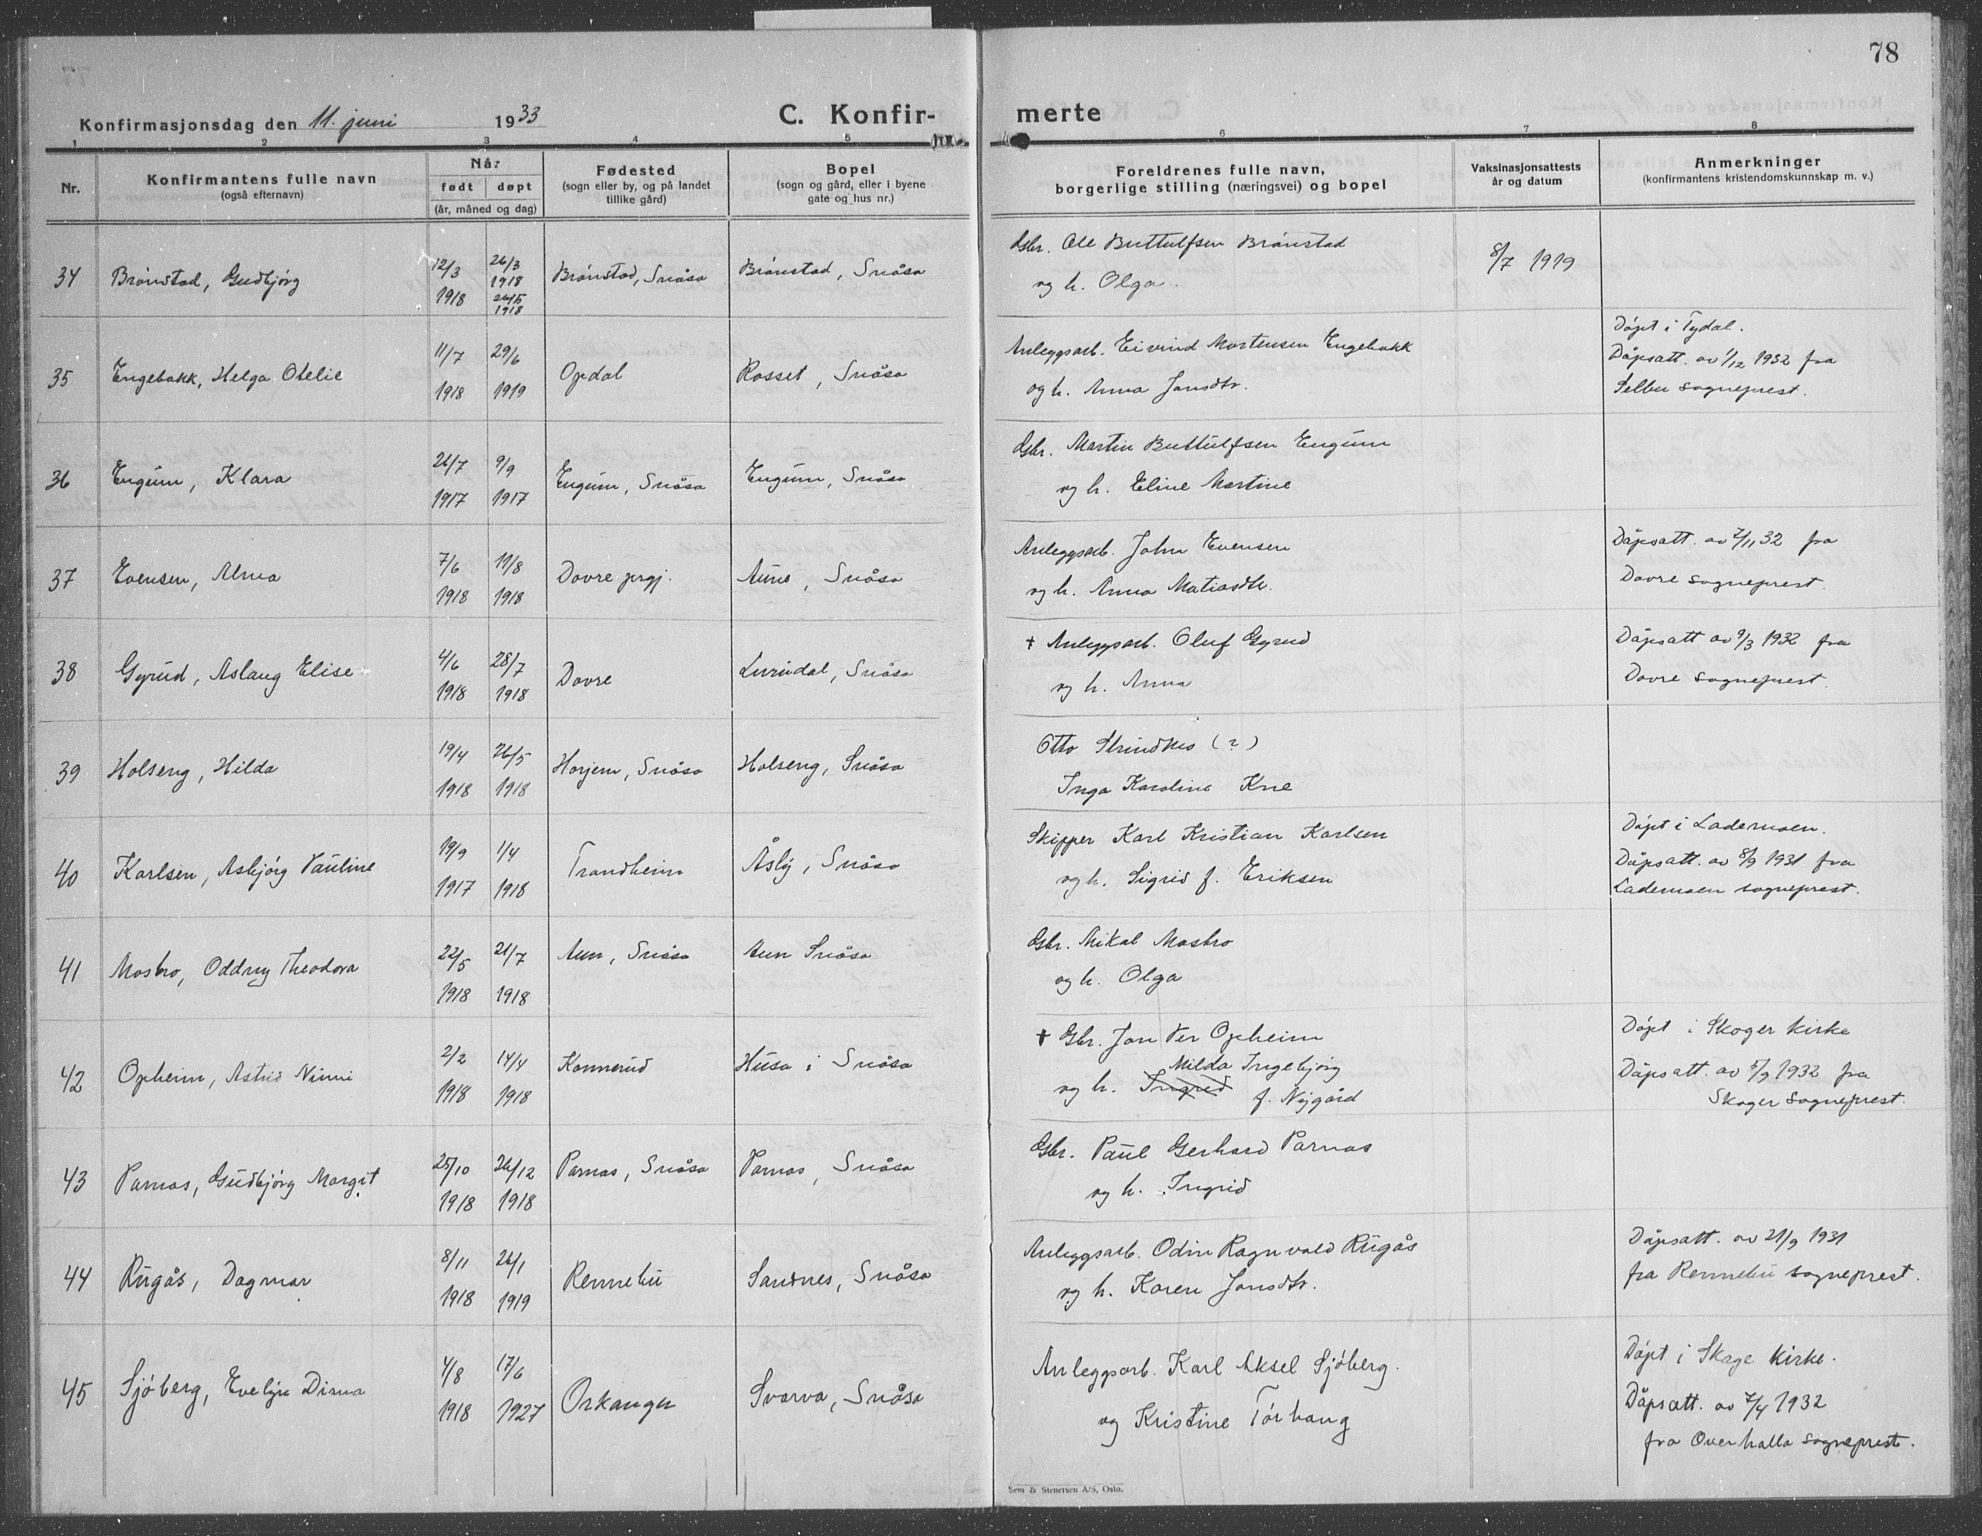 78
Konfirmasjonsdag den 11. juni 1933
C. Konfir-
merte
1 2 3 4 5 6 7 8
Nr.
Konfirmantens fulle navn
(også efternavn)
Når
født døpt
(år, måned og dag)
Fødested
(sogn eller by, og på landet
tillike gård)
Bopel
(sogn og gård, eller i byene
gate og hus nr.)
Foreldrenes fulle navn,
borgerlige stilling (næringsvei) og bopel
Vaksinasjonsattests
år og datum
Anmerkninger
(konfirmantens kristendomskunnskap m. v.)
34 Brønstad, Gudbjørg 12/3 1918 26/3 1918 26/5 1918 Brønstad, Snåsa Brønstad, Snåsa
Gbr. Ole Buttulfsen Brønstad
og h. Olga.
8/7 1919
35 Engebakk, Helga Otelie 11/7 1918 29/6 1919 Opdal Rosset, Snåsa
Anleggsarb. Eivind Mortensen Engebakk
og h. Anna Jonsdtr.
Døpt i Tydal.
Dåpsatt. av 1/12 1932 fra
Selbu sogneprest.
36 Engum, Klara 26/7 1917 9/9 1917 Engum, Snåsa Engum, Snåsa
Gbr. Martin Buttulfsen Engum
og h. Eline Martine
37 Evensen, Alma 7/6 1918 11/8 1918 Dovre prgj. Aune, Snåsa
Anleggsarb. John Evensen
og h. Anna Matiasdtr.
Dåpsatt. av 7/11 32 fra
Dovre sogneprest.
38 Gyrud, Aslaug Elise 4/6 1918 28/7 1918 Dovre Lurudal, Snåsa
† Anleggsarb. Oluf Gyrud
og h. Anna
Dåpsatt av 9/3 1932 fra
Dovre sogneprest.
39 Holseng, Hilda 19/4 1918 26/5 1918 Horjem, Snåsa Holseng, Snåsa
Otto Strindmo (?)
Inga Karoline Kne
40 Karlsen, Asbjørg Pauline 19/9 1917 1/4 1918 Trondheim Åsly, Snåsa
Skipper Karl Kristian Karlsen
og h. Sigrid f. Eriksen
Døpt i Lademoen.
Dåpsatt. av 8/9 1931 fra
Lademoen sogneprest.
41 Mosbro, Oddny Theodora 22/5 1918 21/7 1918 Aun, Snåsa Aun Snåsa
Gbr. Mikal Mosbro
og h. Olga
42 Opheim, Astrid Nimi 2/2 1918 14/4 1918 Konnerud Husa i Snåsa
† Gbr. Jon Per Opheim
Milda Ingebjørg
og h. Ingrid f. Nygård
Døpt i Skoger kirke
Dåpsatt. av 5/9 1932 fra
Skoger sogneprest.
43 Parnas, Gudbjørg Margit 25/10 1918 26/12 1918 Parnas, Snåsa Parnas, Snåsa
Gbr. Paul Gerhard Parnas
og h. Ingrid
44 Rugås, Dagmar 8/11 1918 26/1 1919 Rennebu Sandnes, Snåsa
Anleggsarb. Odin Ragnvald Rugås
og h. Karen Jonsdtr.
Dåpsatt. av 21/9 1931
fra Rennebu sogneprest.
45 Sjøberg, Evelyn Dima 4/8 1918 17/6 1927 Orkanger Svarva, Snåsa
Anleggsarb. Karl Aksel Sjøberg.
og Kristine Tørhaug
Døpt i Skage kirke.
Dåpsatt. av 7/4 1932
fra Overhalla sogneprest.
Sem & Stenersen A/S, Oslo.